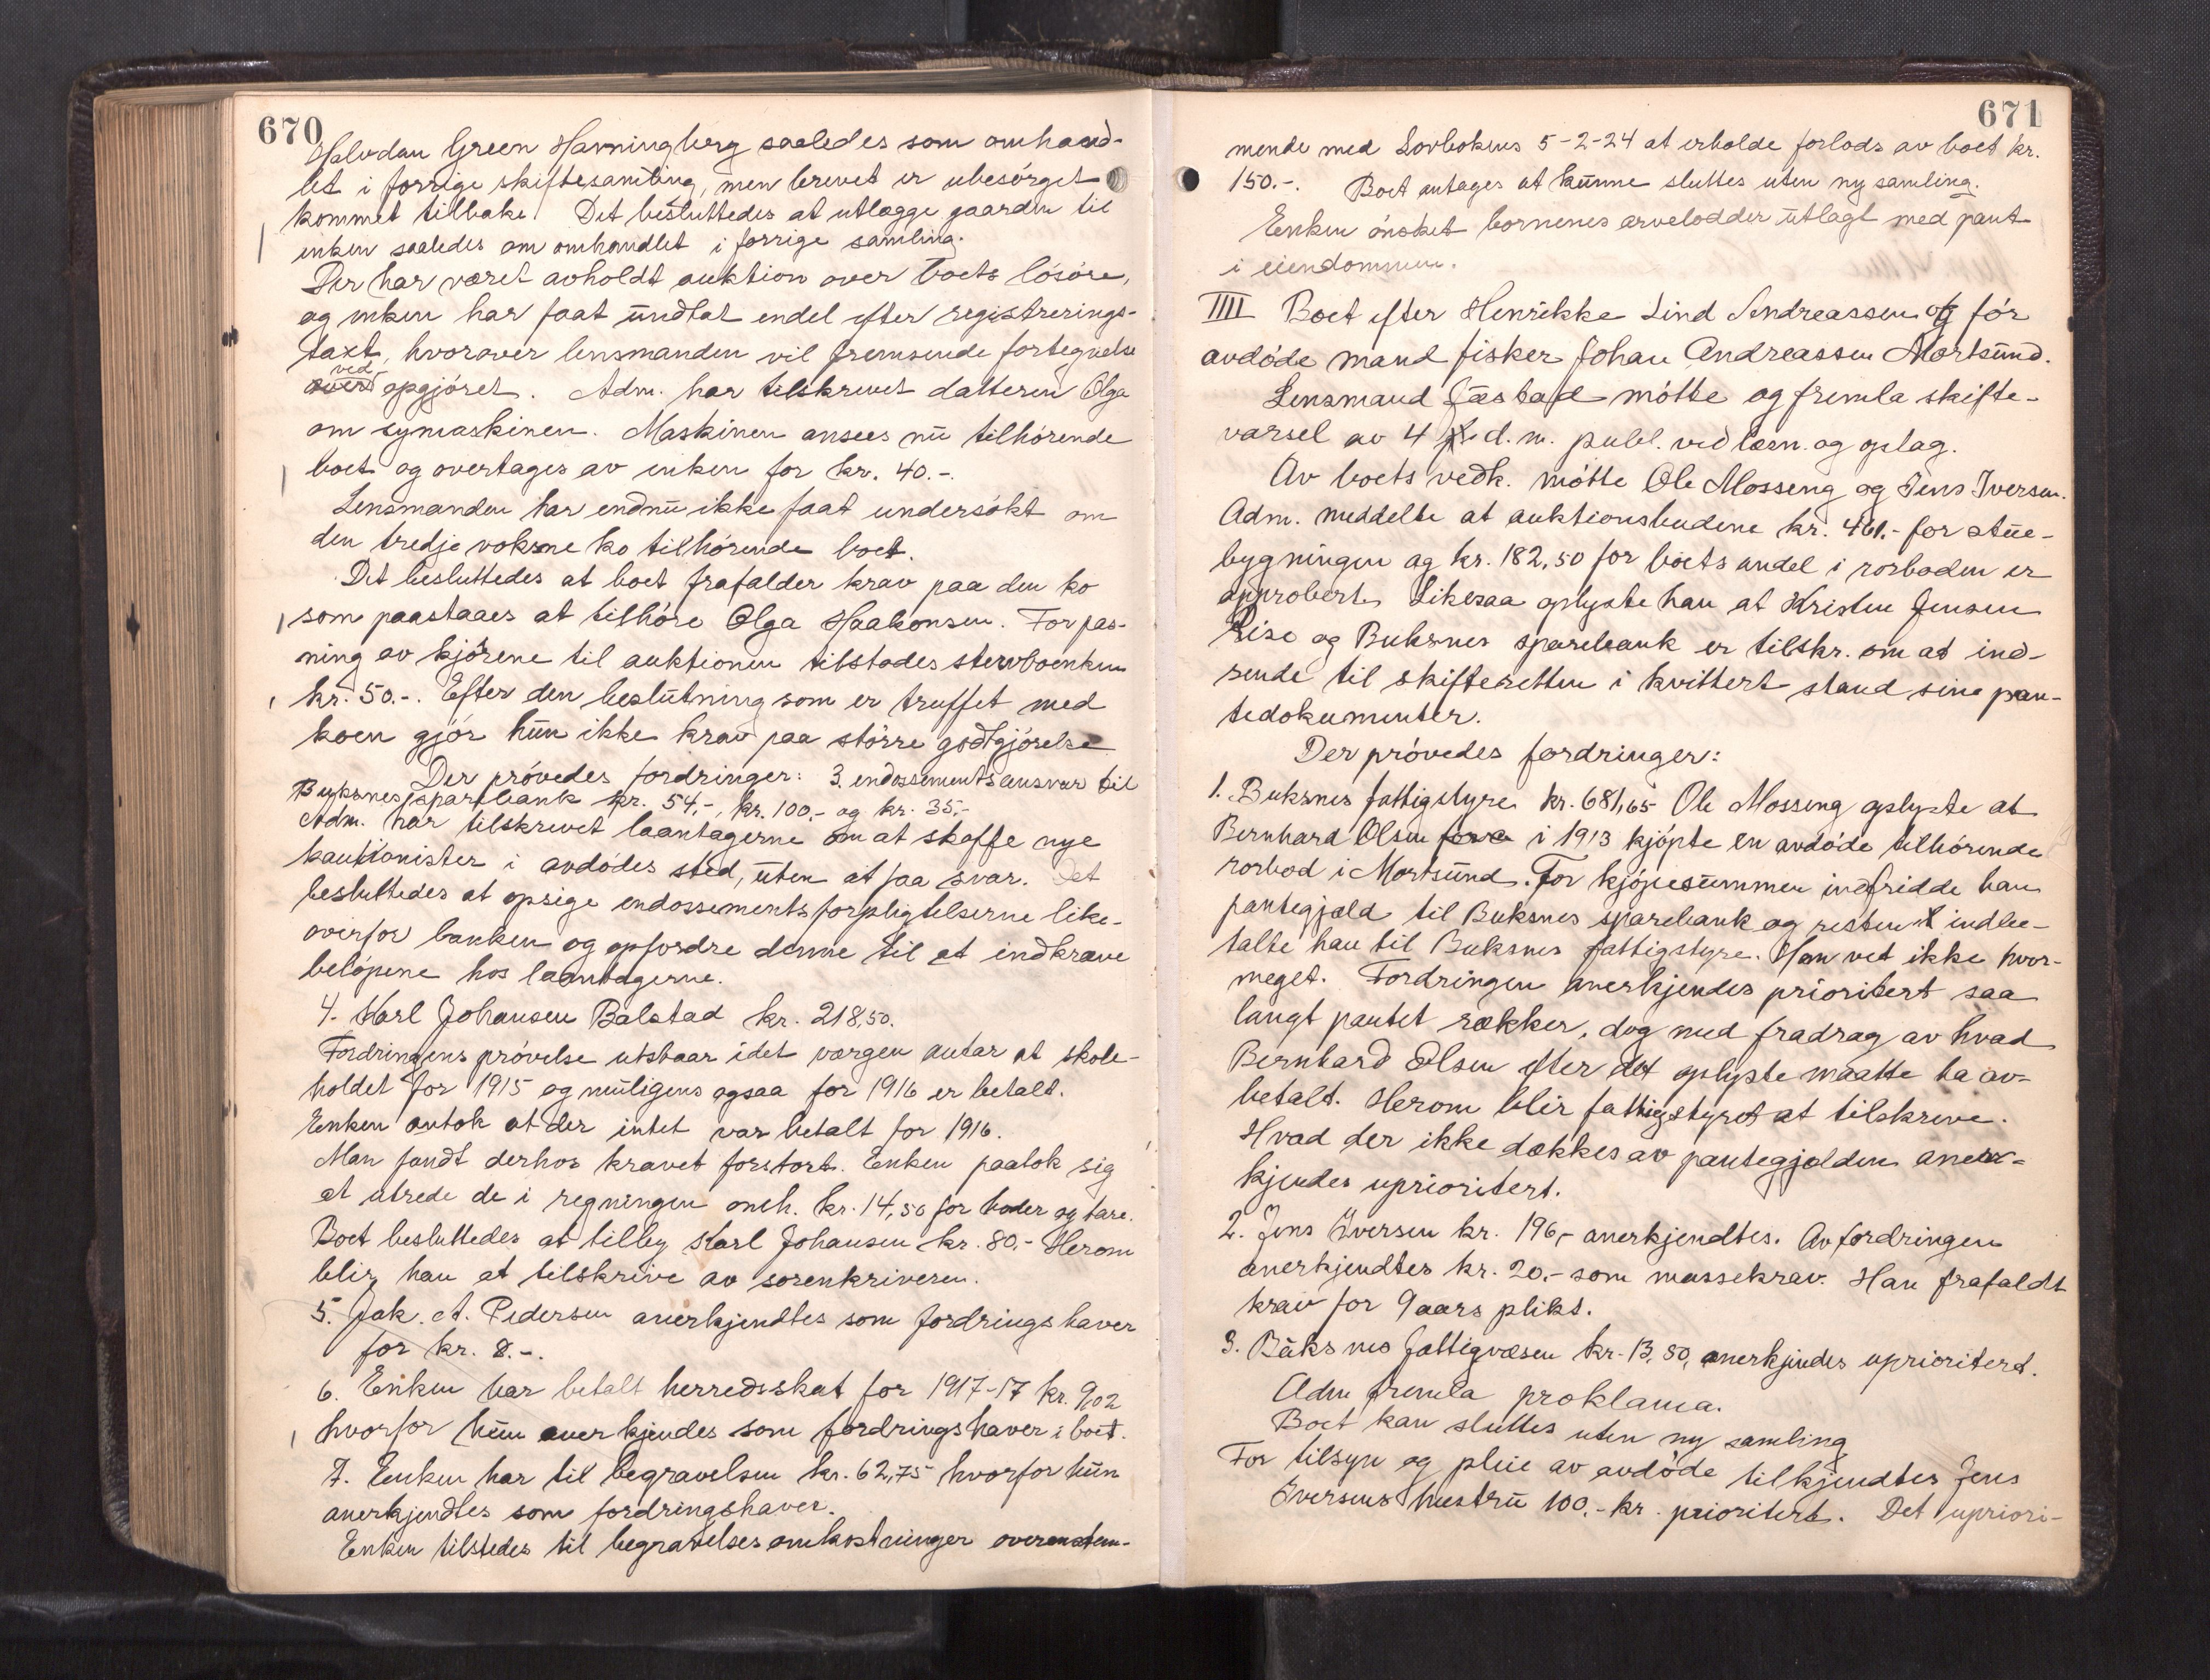 670
Halvdan Green Havningberg saaledes som omhand-
let i forrige skiftesamling, men brevet er ubesórget
kommet tilbake. Det besluttedes at utlægge gaarden til
enken saaledes om omhandlet i forrige samling.
Der har været avholdt auktion over boets lósóre,
og enken har faat undtat endel efter registrerings-
taxt, hvorover lensmanden vil fremsende fortegnelse
ved opgjóret. Adm. har tilskrevet datteren Olga
om symaskinen. Maskinen ansees nu tilhórende
boet og overtages av enken for kr. 40.-.
Lensmanden har endnu ikke faat undersókt om
den tredje voksne ko tilhórende boet.
Det besluttedes at boet frafalder krav paa den ko
som paastaaes at tilhóre Olga Haakonsen. For pas-
ning av kjórene til auktionen tilstades stervboenken
kr. 50.-. Efter den beslutning som er truffet med
koen gjór hun ikke krav paa stórre godtgjórelse
Der próvedes fordringer: 3. endossementsansvar til
Buksnes sparebank kr. 54,-, kr. 100,- og kr. 35,-
Adm. har tilskrevet laantagerne om at skaffe nye
kautionister i avdódes sted, uten at faa svar. Det
besluttedes at opsige endossementsforpligtelserne like-
overfor banken og opfordre denne til at indkræve
belópene hos laantagerne.
4. Karl Johansen Balstad kr. 218,50.
Fordringens próvelse utstaar idet værgen antar at skole-
holdet for 1915 og muligens ogsaa for 1916 er betalt.
Enken antok at der intet var betalt for 1916.
Man fandt derhos kravet forstort. Enken paatok sig
at utrede de i regningen omh. kr. 14,50 for hoder og tare.
Boet besluttedes at tilby Karl Johansen kr. 80.- Herom
blir han at tilskrive av sorenkriveren.
5. Jak. A. Pedersen anerkjendtes som fordringshaver
for kr. 8.-.
6. Enken har betalt herredsskat for 1917-17 kr. 9,02
hvorfor hun anerkjendes som fordringshaver i boet.
7. Enken har til begravelsen kr. 62,75 hvorfor hun
anerkjendtes som fordringshaver.
Enken tilstedes til begravelsesomkostninger overenstem-
671
mende med Lovbokens 5-2-24 at erholde forlods av boet kr.
150.-. Boet antages at kunne sluttes uten ny samling.
Enken ónsket bornenes arvelodder utlagt med pant
i eiendommen.
IIII Boet efter Henrikke Lind Andreassen og fór
avdóde mand fisker Johan Andreassen Mortsund.
Lensmand Jæstad mótte og fremla skifte-
varsel av 4 d.m. publ. ved læsn. og oplag.
Av boets vedk. mótte Ole Mosseng og Jens Iversen.
Adm. meddelte at auktionsbudene kr. 461.- for stue-
bygningen og kr. 182,50 for boets andel i rorboden er
approbert. Likesaa oplyste han at Kristen Jensen
Rise og Buksnes sparebank er tilskr. om at ind-
sende til skifteretten i kvittert stand sine pan-
tedokumenter.
Der próvedes fordringer:
1. Buksnes fattigstyre kr. 681,65 Ole Mosseng oplyste at
Bernhard Olsen i 1913 kjópte en avdóde tilhórende
rorbod i Mortsund. For kjópesummen indfridde han
pantegjæld til Buksnes sparebank og resten indbe-
talte han til Buksnes fattigstyre. Han vet ikke hvor-
meget. Fordringen anerkjendes prioritert saa
langt pantet rækker, dog med fradrag av hvad
Bernhard Olsen efter det oplyste maatte ha av-
betalt. Herom blir fattigstyret at tilskrive.
Hvad der ikke dækkes av pantegjælden aner-
kjendes uprioritert.
2. Jens Iversen kr. 196,- anerkjendtes. Av fordringen
anerkjendtes kr. 20.- som massekrav. Han frafaldt
krav for 9 aars plikt.
3. Buksnes fattigvæsen kr. 13,80, anerkjendes uprioritert.
Adm fremla proklama.
Boet kan sluttes uten ny samling
For tilsyn og pleie av avdóde tilkjendtes Jens
Iversens hustru 100.- kr. prioritert. Det upriori-